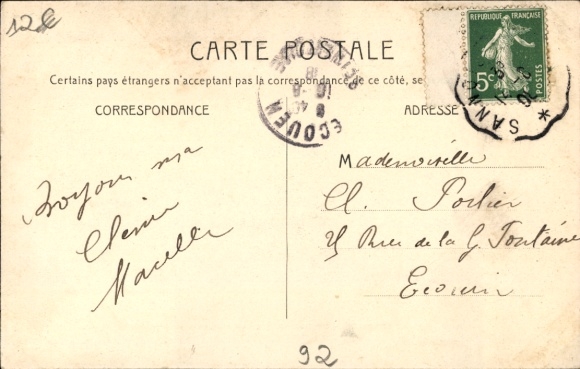 12€
CARTE POSTALE
Certains pays étrangers n'acceptant pas la correspondance de ce côté, se
CORRESPONDANCE
ADRESSE
RÉPUBLIQUE FRANÇAISE
5c
POSTES
SANNO
ECOUEN
Mademoiselle
Rue de la G. Fontaine
Ecouen
Bonjour ma
Chérie
Marcelle
92